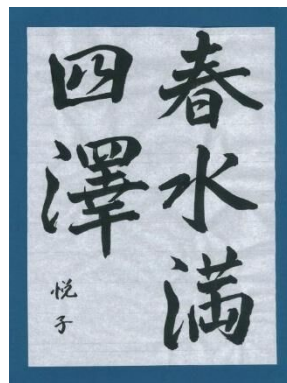 春水満
四澤
悦子